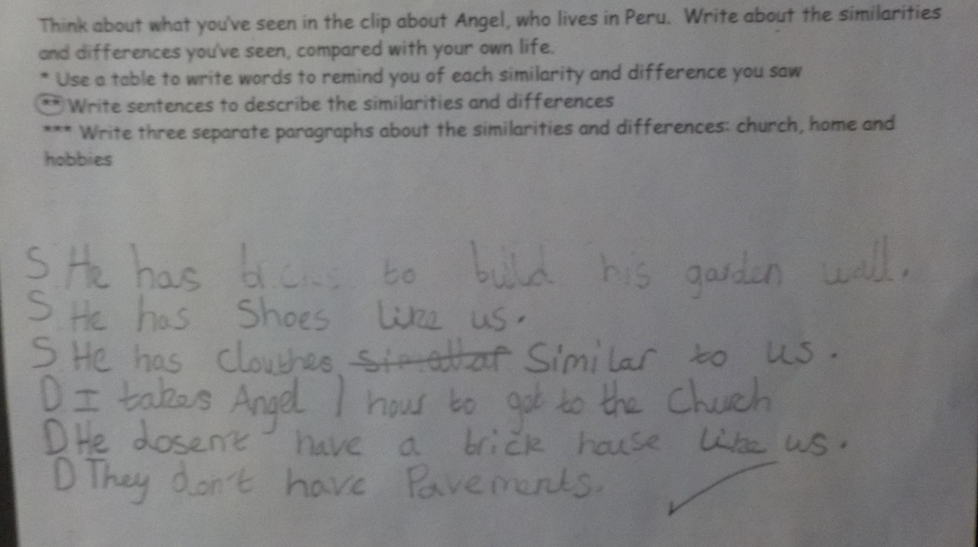 Think about what you've seen in the clip about Angel, who lives in Peru. Write about the similarities
and differences you've seen, compared with your own life.
* Use a table to write words to remind you of each similarity and difference you saw
** Write sentences to describe the similarities and differences
*** Write three separate paragraphs about the similarities and differences: church, home and
hobbies
S He has bricks to build his garden wall.
S He has Shoes like us.
S He has clouthes Similar to us.
D I takes Angel 1 hour to get to the Church
D He dosent have a brick house like us.
D They don't have Pavements.